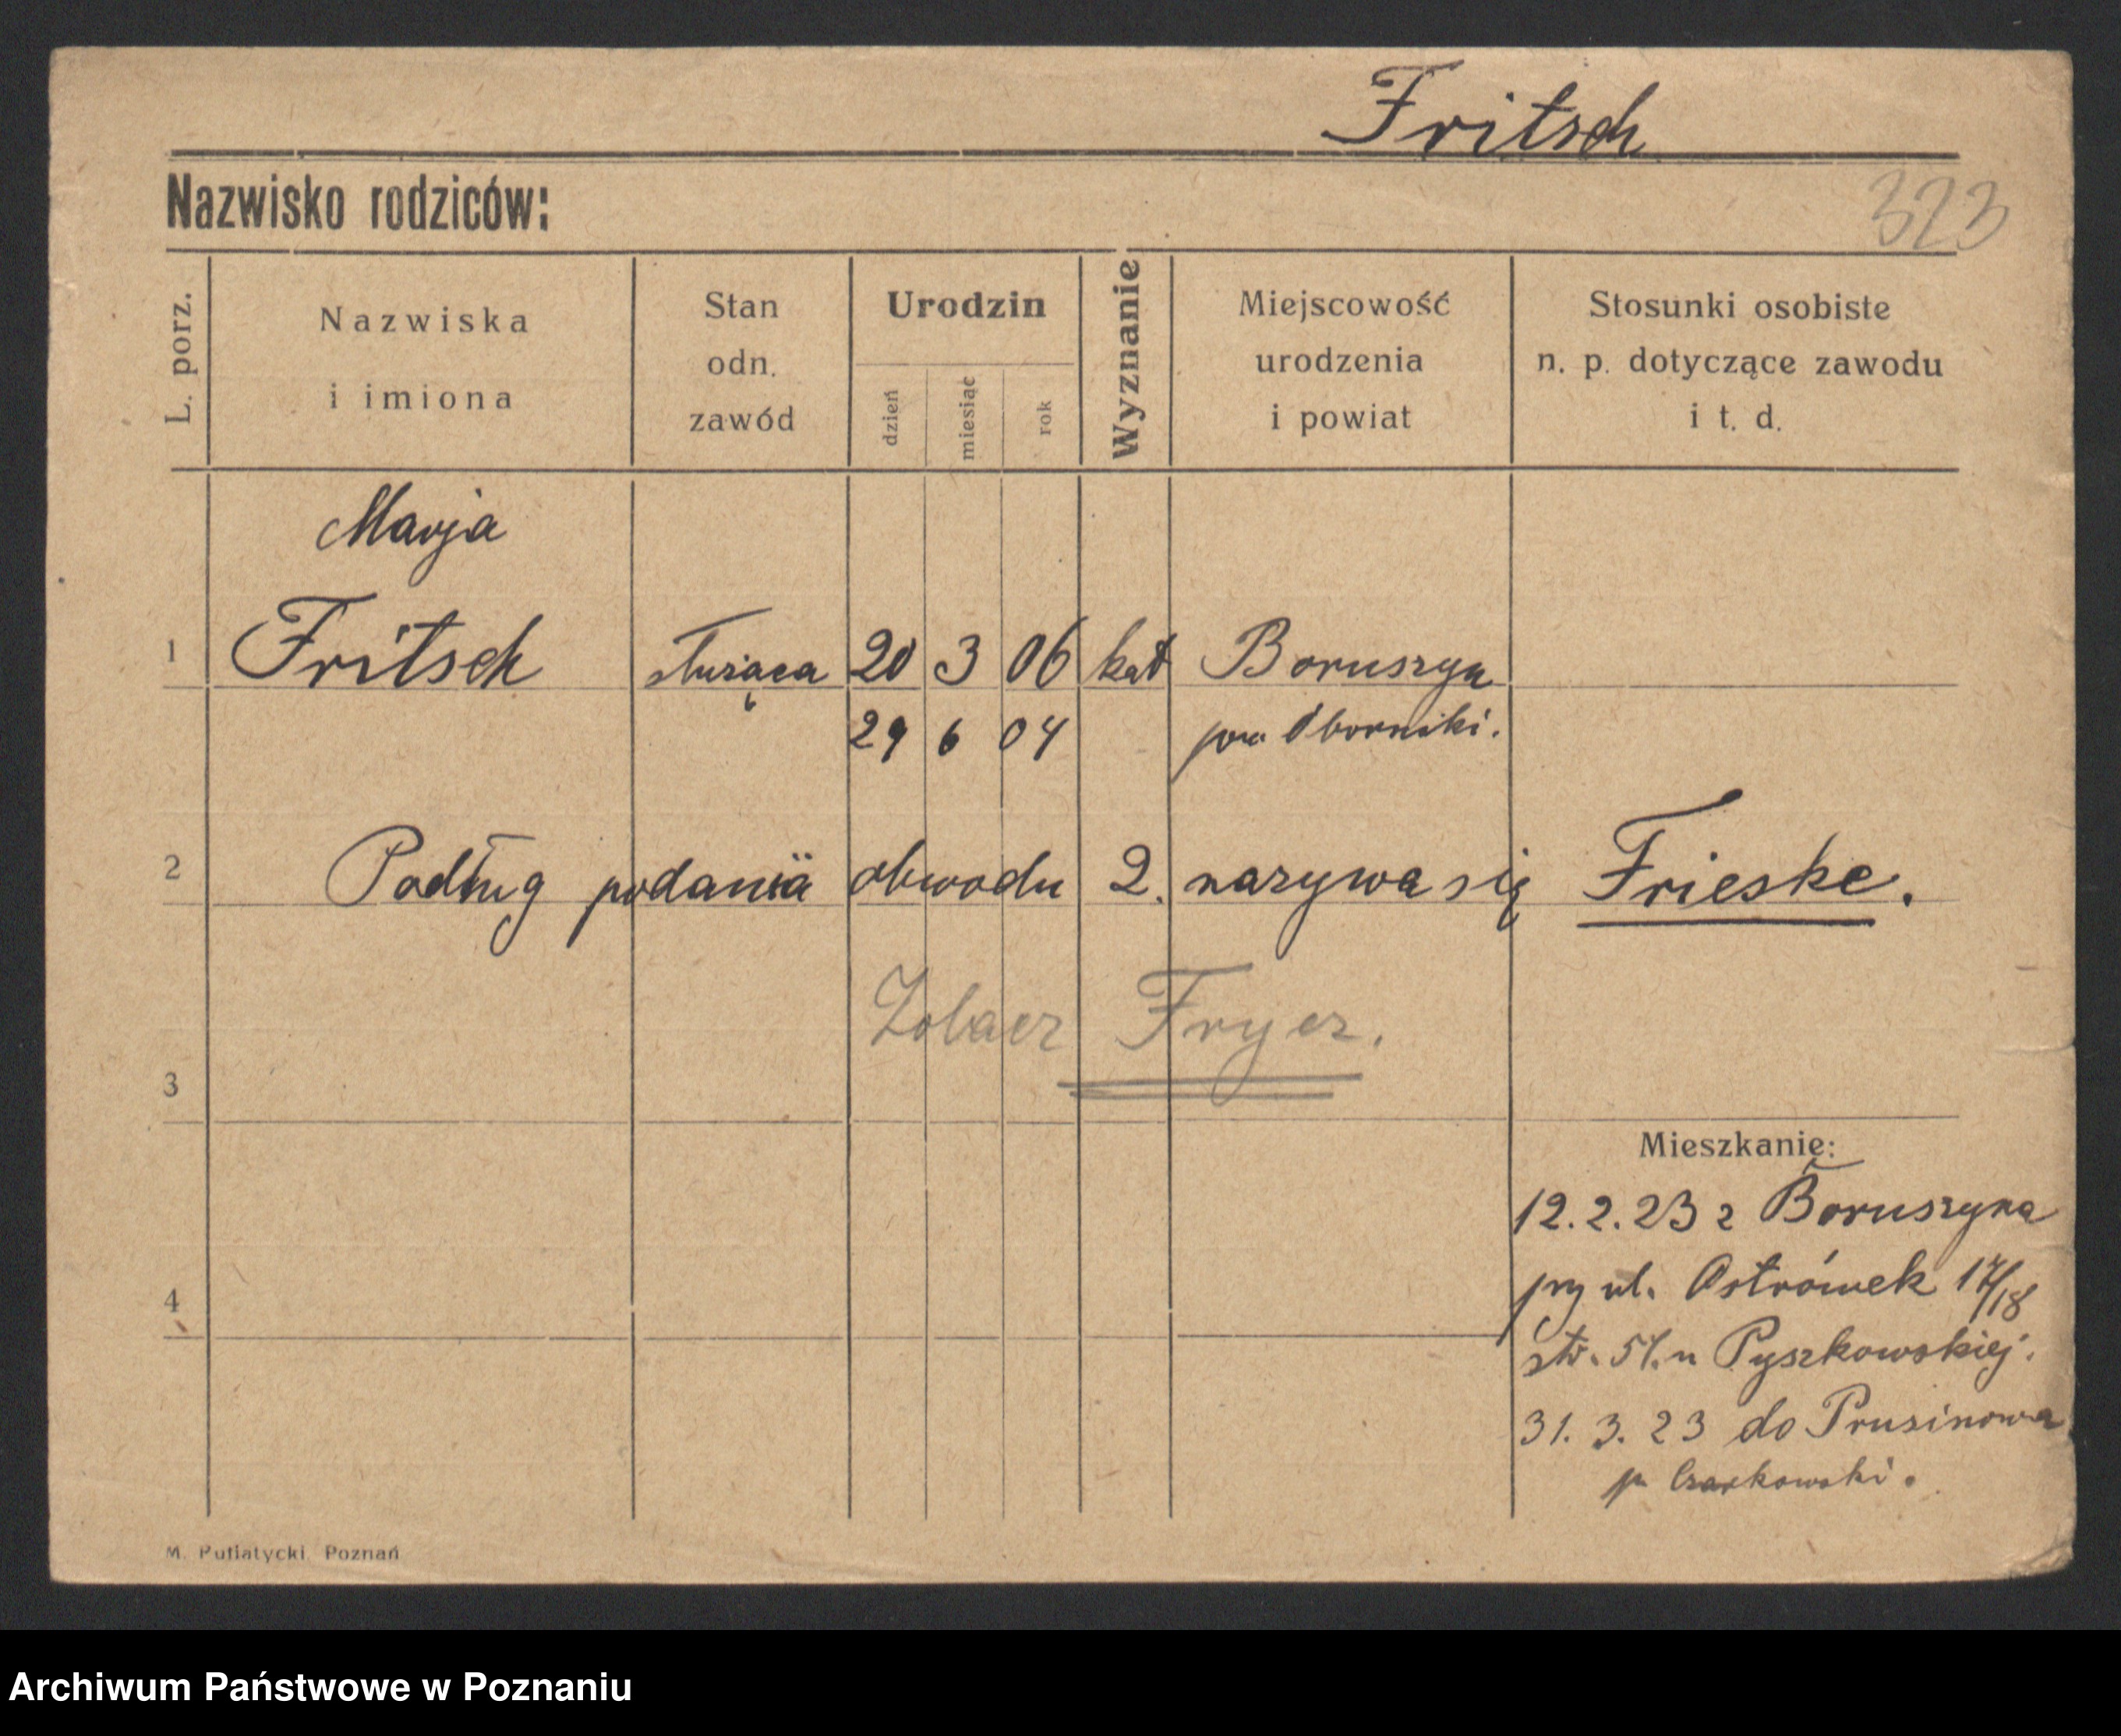 Fritsch
Nazwisko rodziców:
323
L. porz.
Nazwiska
i imiona
Stan
odn.
zawód
Urodzin
dzień
miesiąc
rok
Wyznanie
Miejscowość
urodzenia
i powiat
Stosunki osobiste
n. p. dotyczące zawodu
i t. d.
Marja
1 Fritsch służąca 20 3 06 kat Boruszyn
29 6 04 pow Oborniki.
2 Podług podania obwodu 2. nazywa się Frieske.
Zobacz Frycz.
3
Mieszkanie:
12.2.23 z Boruszyna
przy ul. Ostrówek 17/18
4
u Pyszkowskiej.
31. 3. 23 do Prusinowa
p. Czarkowski.
M. Putiatycki Poznań
Archiwum Państwowe w Poznaniu